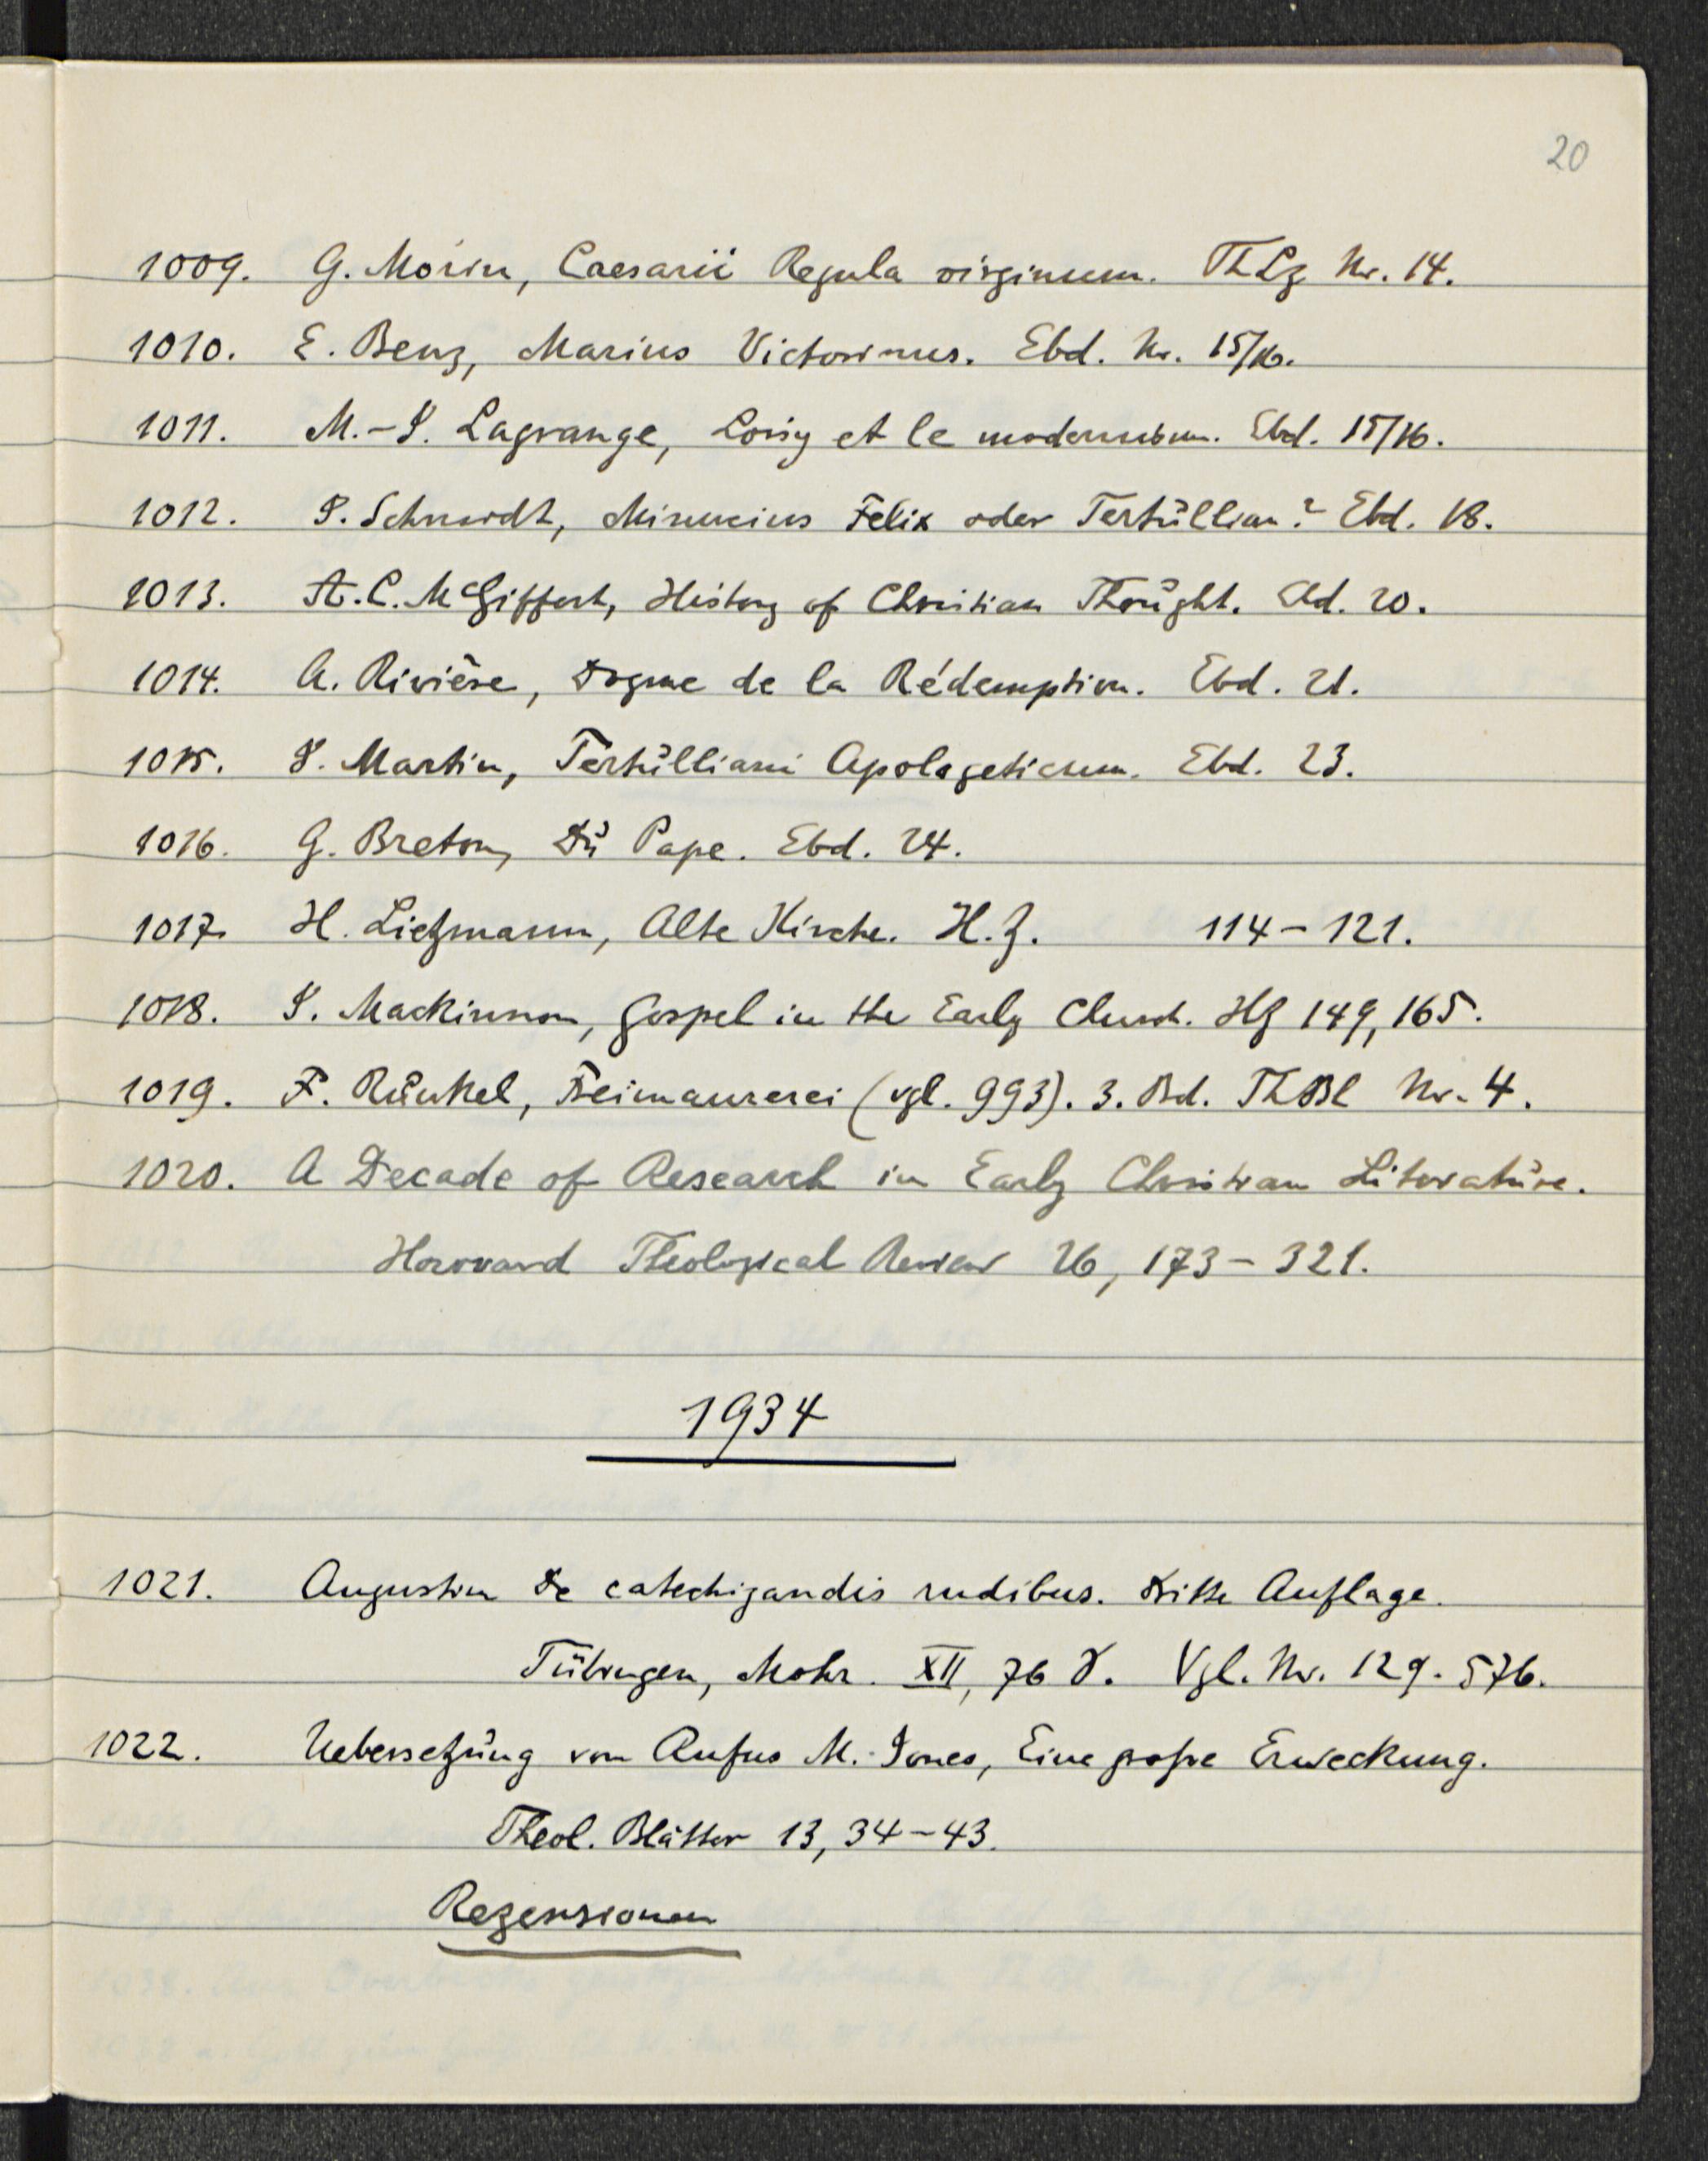 20
1009. G. Morin, Caesarii Regula virginum. ThLz Nr. 14.
1010. E. Benz, Marius Victorinus. Ebd. Nr. 15/16.
1011. M.-J. Lagrange, Loisy et le modernism. Ebd. 15/16.
1012. J. Schmidt, Minucius Felix oder Tertullian? Ebd. 18.
1013. A. C. McGiffert, History of Christian Thought. Ebd. 20.
1014. A. Rivière, Dogme de la Rédemption. Ebd. 21.
1015. J. Martin, Tertulliani Apologeticum. Ebd. 23.
1016. G. Breton, Du Pape. Ebd. 24.
1017. H. Lietzmann, Alte Kirche. H.Z. 114-121.
1018. J. Mackinnon, Gospel in the Early Church. HZ 149, 165.
1019. F. Runkel, Freimaurerei (vgl. 993). 3. Bd. ThBl Nr. 4.
1020. A Decade of Research in Early Christian Literature.
Harvard Theological Review 26, 173-321.
1934
1021. Augustin De catechizandis rudibus. Dritte Auflage.
Tübingen, Mohr. XII, 76 S. Vgl. Nr. 129. 576.
1022. Uebersetzung von Rufus M. Jones, Eine große Erweckung.
Theol. Blätter 13, 34-43.
Rezensionen